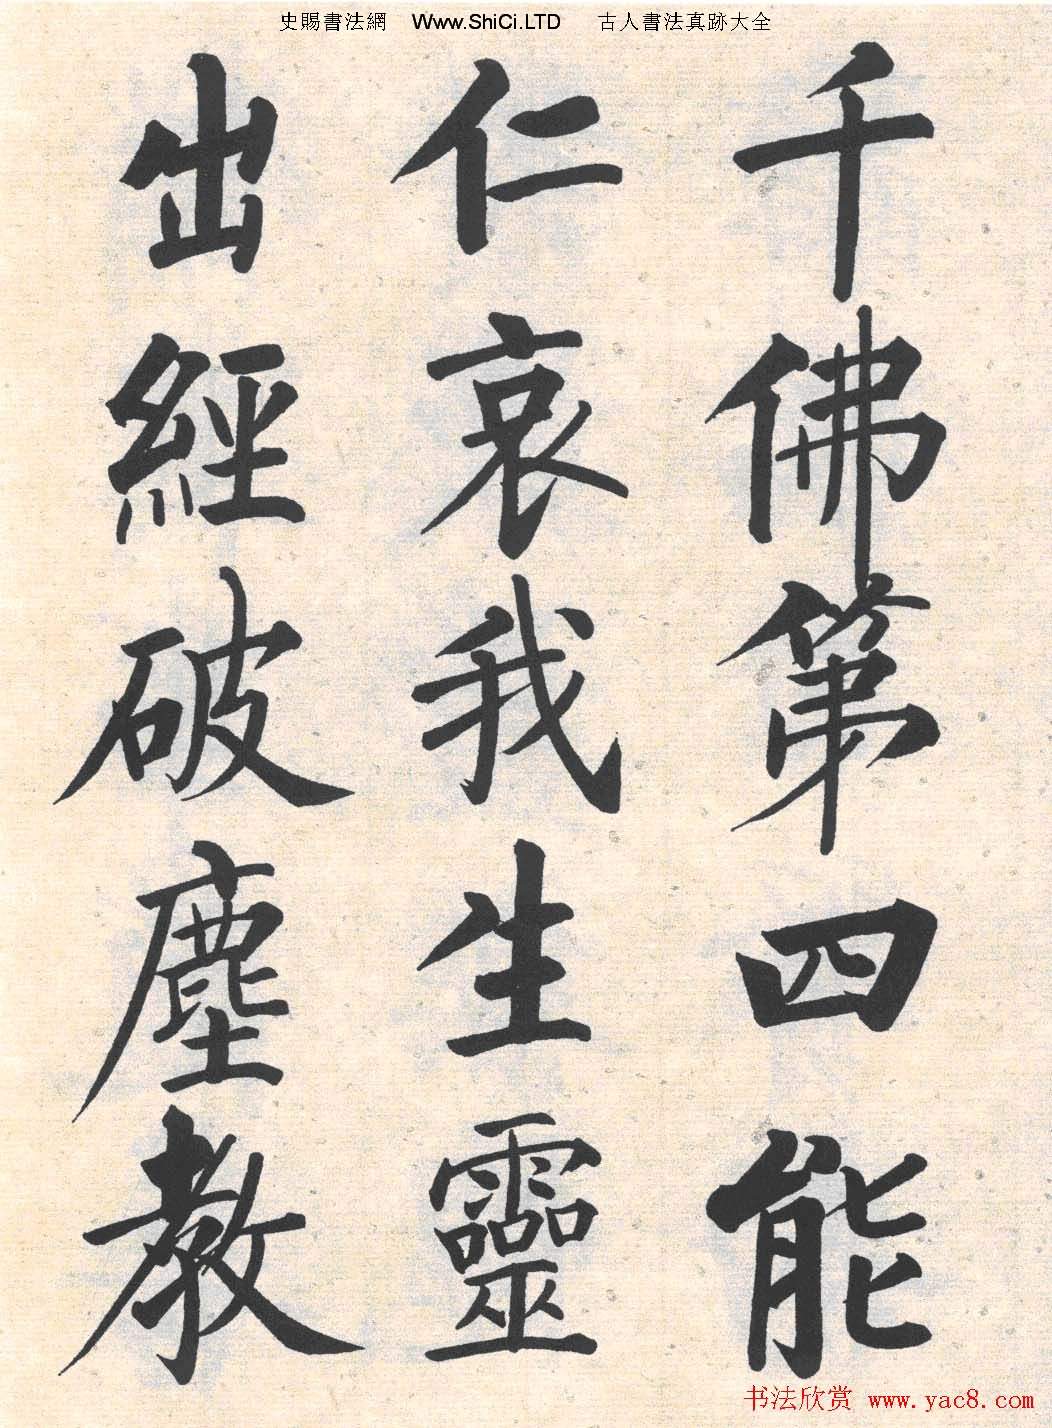 史賜書法網 Www.ShiCi.LTD 古人書法真跡大全
千佛第四能
仁哀我生靈
出經破塵教
书法欣赏 www.yac8.com